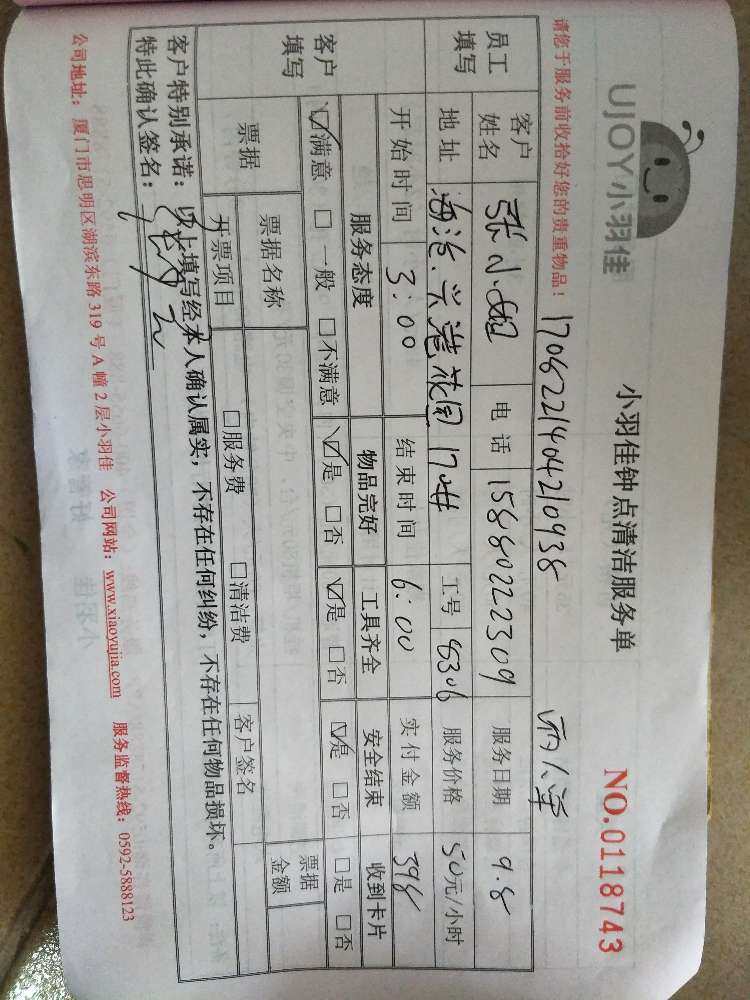 UJOY小羽佳
小羽佳钟点清洁服务单
NO.0118743
请您于服务前收拾好您的贵重物品！ 1708221404210938
员工填写 客户姓名 张小姐 电话 15880222309 服务日期 9.8
地址 海沧.兴港花园17# 工号 8306 服务价格 50元/小时
开始时间 3:00 结束时间 6:00 实付金额 398
客户填写 服务态度 物品完好 工具齐全 安全结束 收到卡片
☑满意 □一般 □不满意 ☑是 □否 ☑是 □否 ☑是 □否 □是 □否
票据 票据名称 □服务费 □清洁费 客户签名 票据金额
开票项目
客户特别承诺：以上填写经本人确认属实，不存在任何纠纷，不存在任何物品损坏。
特此确认签名：
公司地址：厦门市思明区湖滨东路319号A幢2层小羽佳 公司网站：www.xiaoyujia.com 服务监督热线：0592-5888123